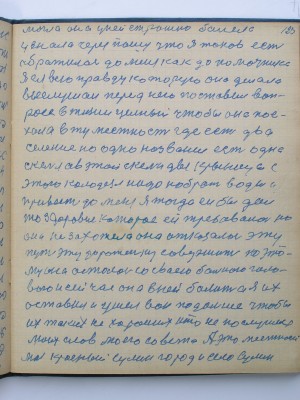 могла она у ней страшно болела 185
узнала через Пашу что я таков есть
обратилась до меня как до помощника
Я ей всю правду которую она делала
выслушал перед нею поставил воп-
рос в жизни ценный чтобы она пое-
хала в ту местность где есть два
селение но одно название есть одна
скеля а в этой скеле два кринецы с
этого колодезя надо набрать воды и
привезти до меня Я тогда ей бы дал
то здоровье которое ей требовалось но
она не захотела она отказалась эту
путь эту дорожку совершить поэто-
му она осталась со своею больною голо-
вою и сейчас она в ней болит а я их
оставил и ушел вон подальше чтобы
их таких не хороших кто не послушал
моих слов моего совета А это местность
мая город и село Сумы